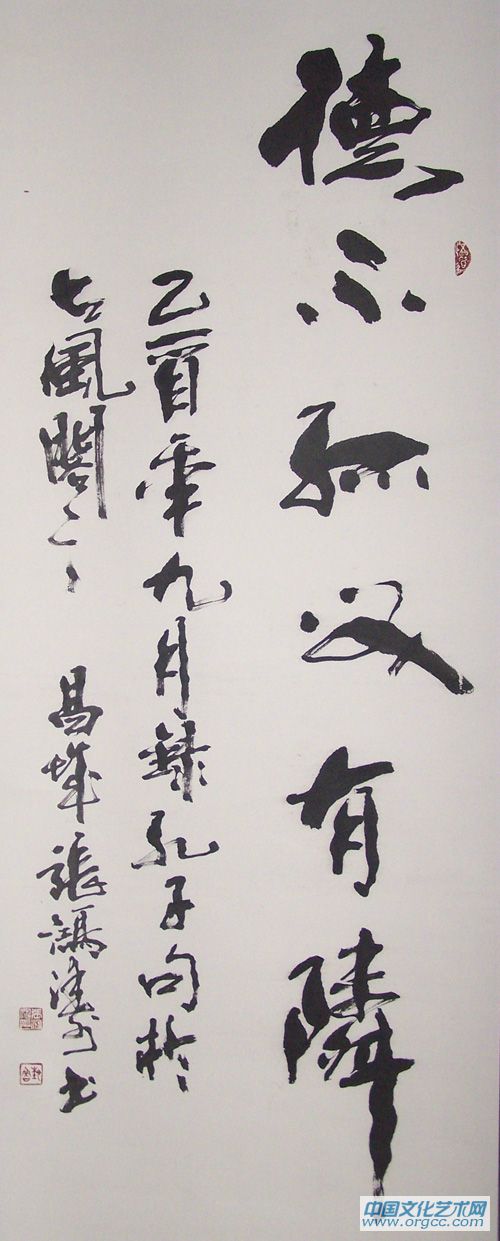 德不孤必有隣
乙酉年九月錄孔子句於
風閣
昌城張鴻濤书
中国文化艺术网
www.orgcc.com